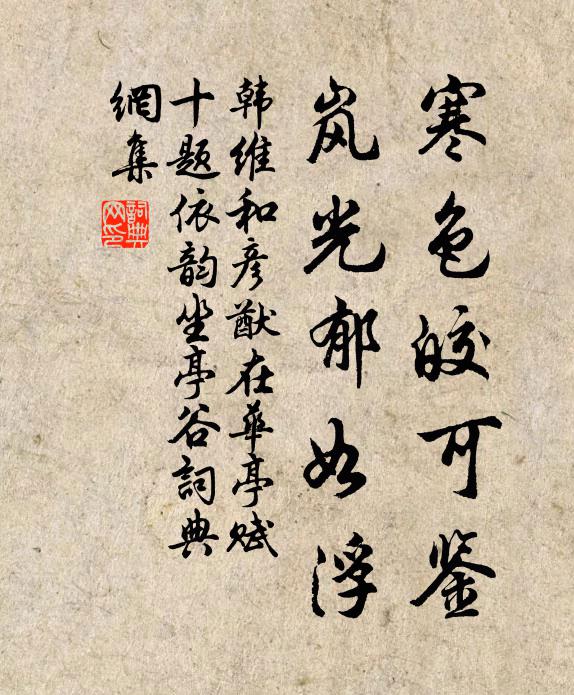 寒色皎可鉴
岚光郁如浮
韩维和彦猷在华亭赋
十题依韵坐亭谷詞典
網集
詞典
网印